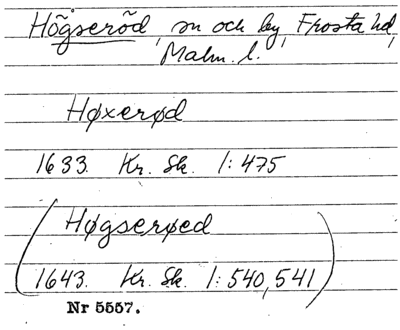 Högseröd, sn och by, Frosta hd,
Malm. l.
Høxerød
1633. Kr. Sk. 1:475
(Høgserøed
1643. Kr. Sk. 1:540,541)
Nr 5557.